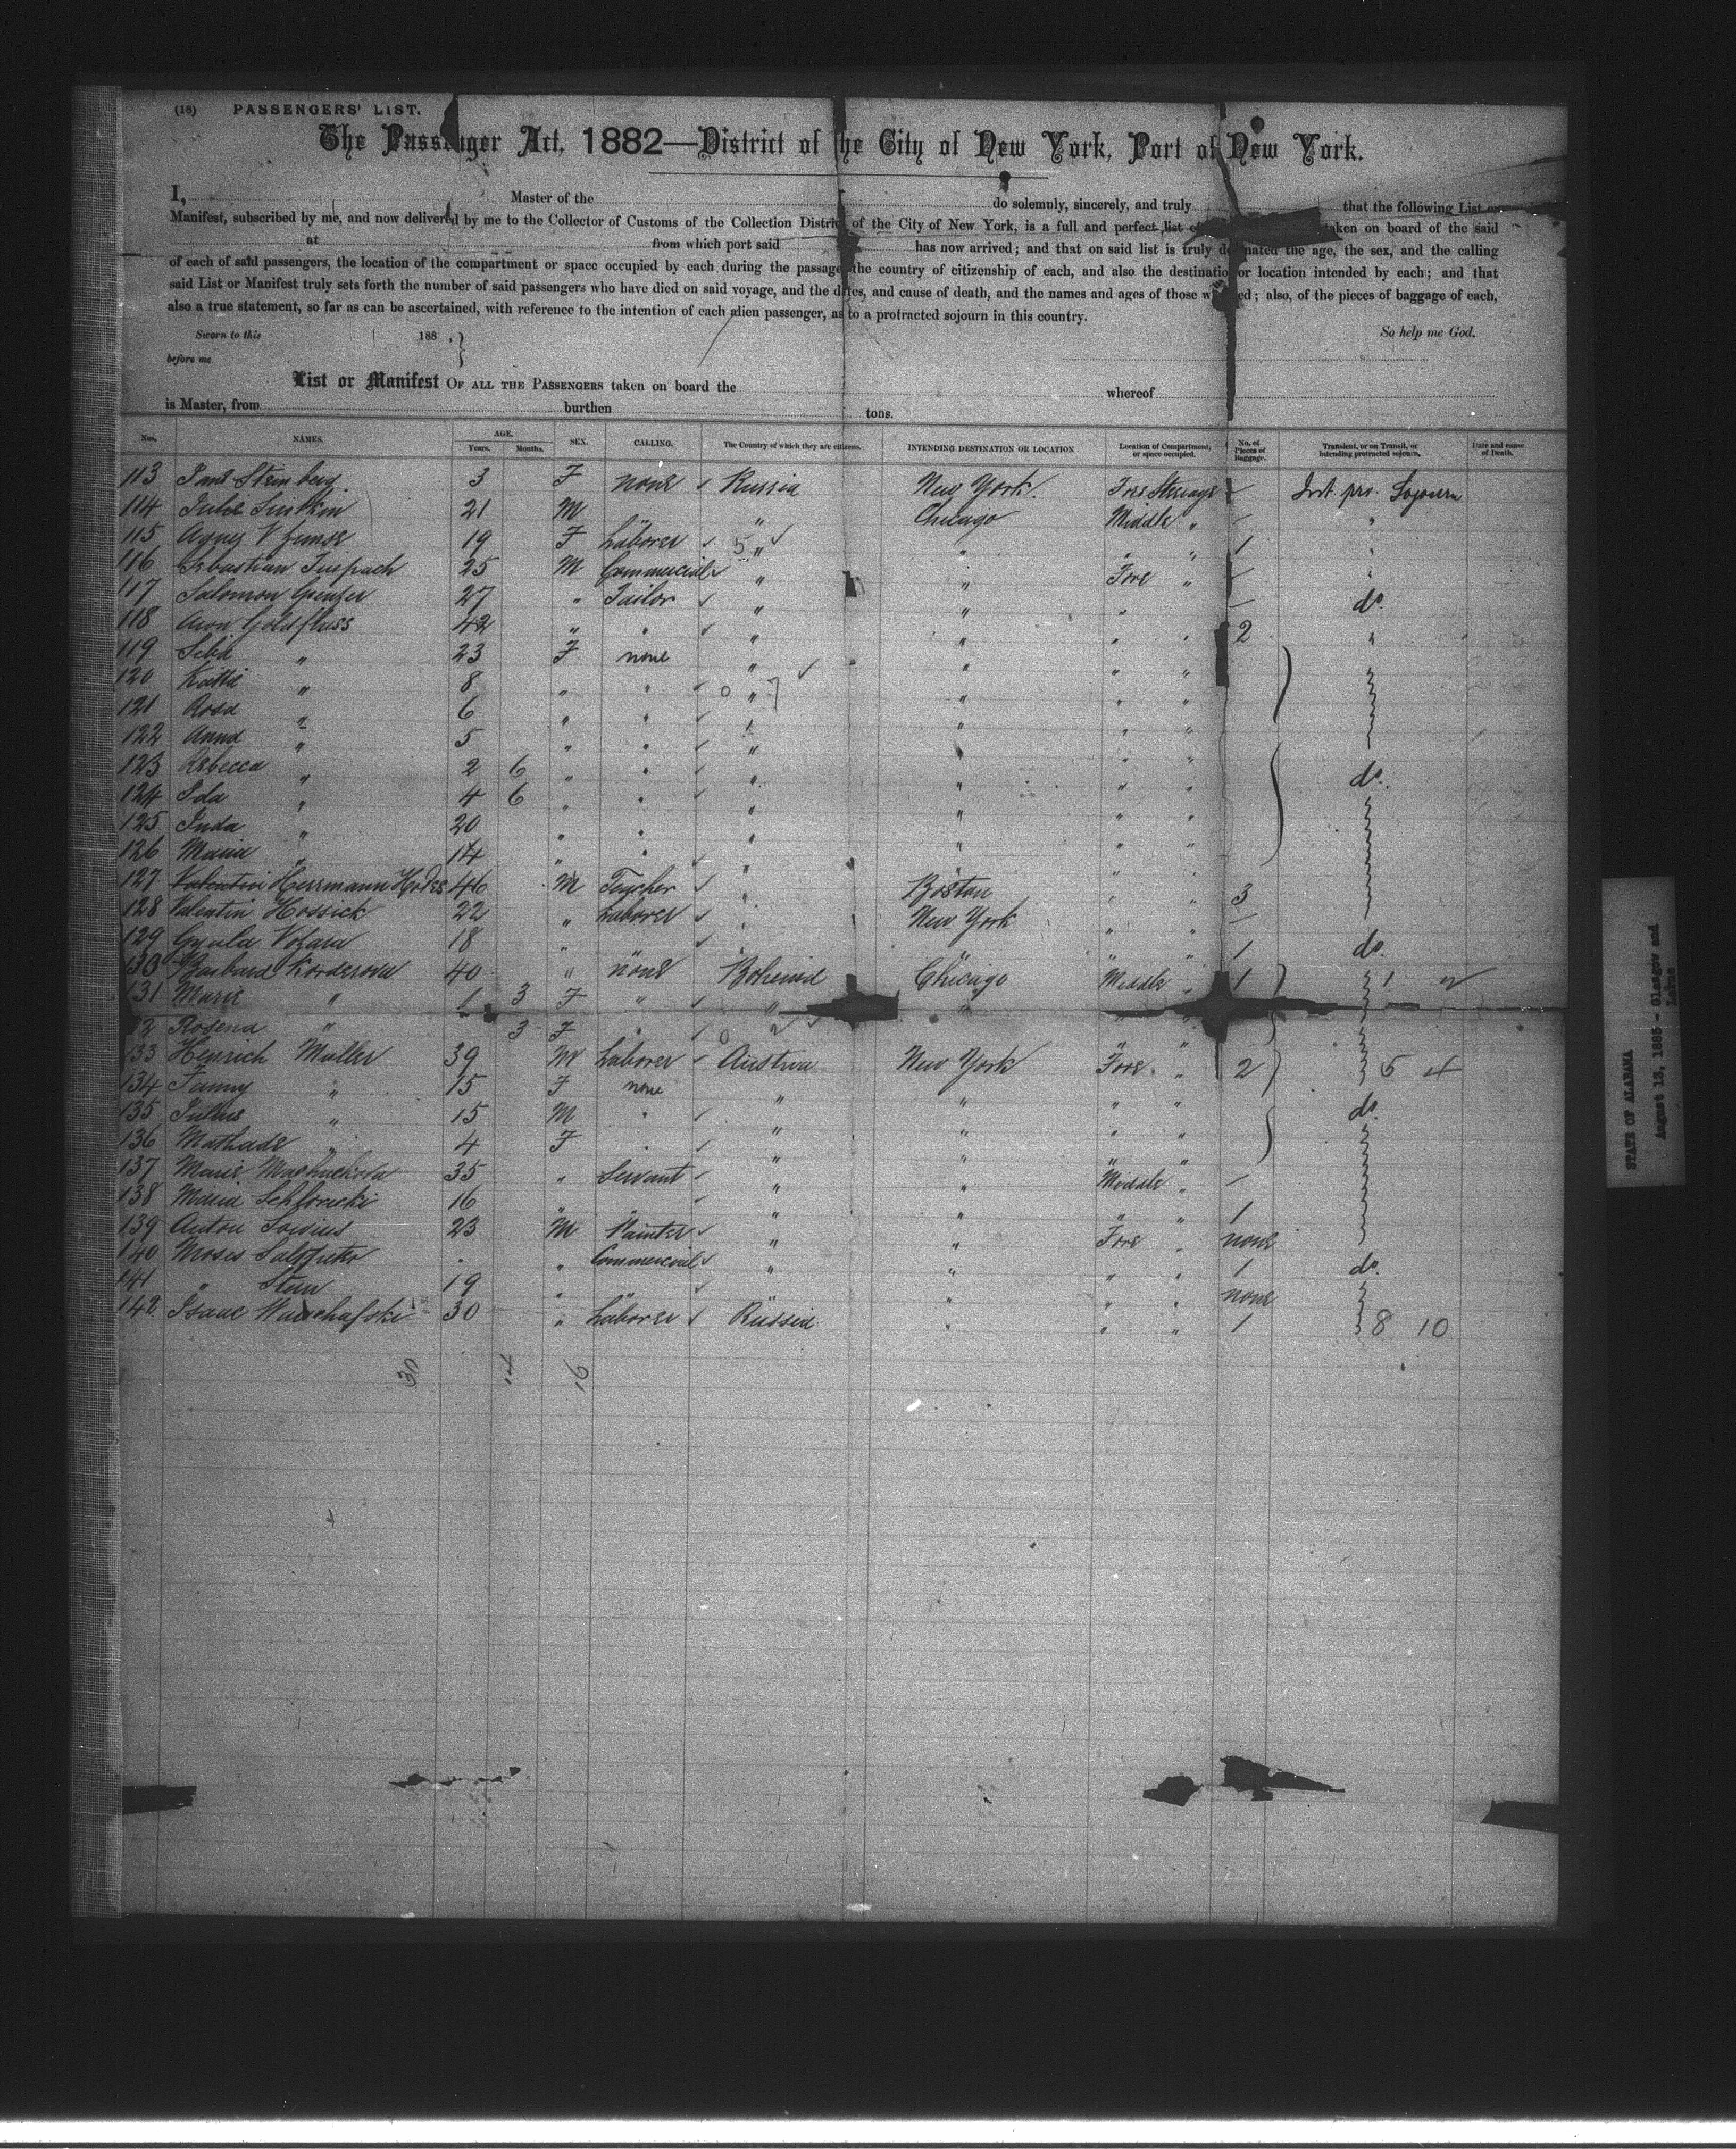 (18) PASSENGERS' LIST.
The Passenger Act, 1882—District of the City of New York, Port of New York.
I, Master of the do solemnly, sincerely, and truly that the following List or
Manifest, subscribed by me, and now delivered by me to the Collector of Customs of the Collection District of the City of New York, is a full and perfect list of taken on board of the said
at from which port said has now arrived; and that on said list is truly designated the age, the sex, and the calling
of each of said passengers, the location of the compartment or space occupied by each during the passage the country of citizenship of each, and also the destination or location intended by each; and that
said List or Manifest truly sets forth the number of said passengers who have died on said voyage, and the dates, and cause of death, and the names and ages of those who died; also, of the pieces of baggage of each,
also a true statement, so far as can be ascertained, with reference to the intention of each alien passenger, as to a protracted sojourn in this country.
Sworn to this 188 . } So help me God.
before me
List or Manifest OF ALL THE PASSENGERS taken on board the whereof
is Master, from burthen tons.
Nos. NAMES. AGE. Years. Months. SEX. CALLING. The Country of which they are citizens. INTENDING DESTINATION OR LOCATION Location of Compartment, or space occupied. No. of Pieces of Baggage. Transient, or on Transit, or Intending protracted sojourn. Date and cause of Death.
113 Steinberg 3 F none Russia New York. Fore Steerage — Int. pro. Sojourn
114 Julie 21 M " " Chicago Middle " — "
115 Agnes 19 F Laborer 5 " " " " 1 "
116 Sebastian 25 M Commercial " " Fore " — "
117 Salomon 27 " Tailor " " " " — do.
118 Aron Goldfluss 42 " " " " " " 2 "
119 " 23 F none " " " "
120 " 8 " " 0 " 7 " " "
121 Rosa " 6 " " " " " "
122 Anna " 5 " " " " " "
123 Rebecca " 2 6 " " " " " " do.
124 Ida " 4 6 " " " " " "
125 " 20 " " " " " "
126 Maria " 14 " " " " " "
127 Herrmann 46 M Teacher " Boston " " 3
128 Valentin Hossick 22 " Laborer " New York " " —
129 Gyula 18 " " " " " " 1 do.
130 Barbara Korderova 40 " none Bohemia Chicago Middle " 1 1 2
131 Marie " 1 3 F " " " " "
132 Rosena " 3 F " 0 2 " "
133 Henrich Muller 39 M Laborer Austria New York Fore " 2 5 4
134 Fanny " 15 F none " " " "
135 Julius " 15 M " " " " " do.
136 " 4 F " " " " "
137 Marie 35 " Servant " " Middle " —
138 Maria 16 " " " " " " 1
139 Anton 23 M Painter " " Fore " none
140 Moses . " Commercial " " " " 1 do.
141 " Stern 19 " " " " " none
142 Isaac 30 " Laborer Russia " " " 1 8 10
30 14 16
STATE OF ALABAMA
August 13, 1885 - Glasgow and